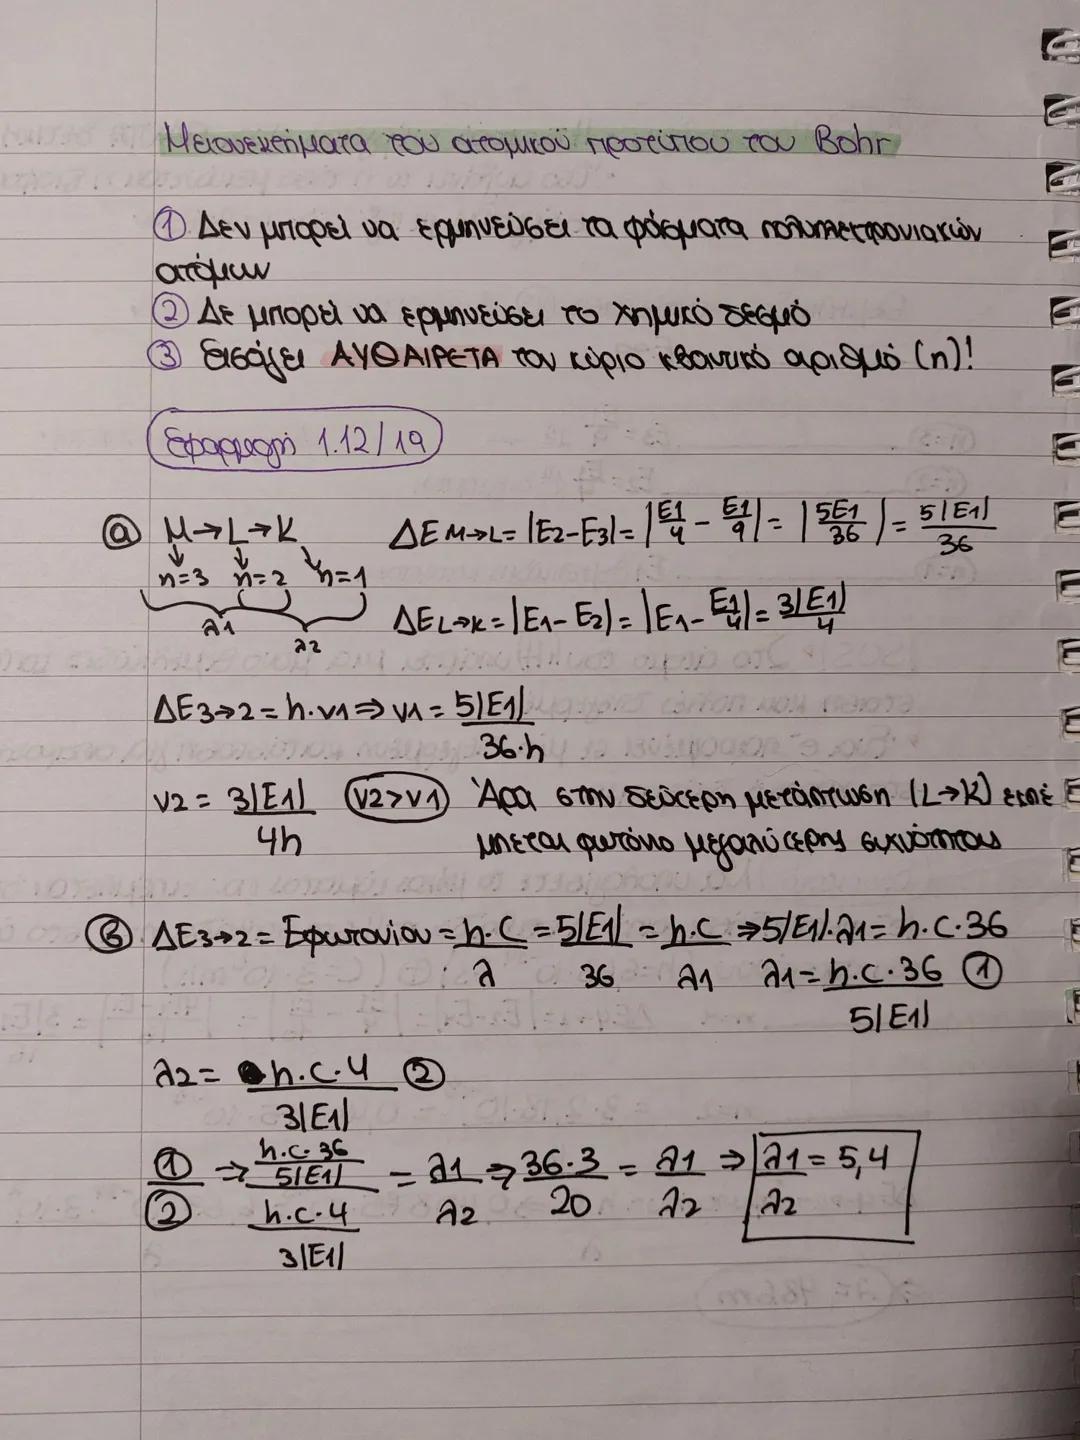 Μειονεκτήματα του ατομικού προτύπου του Bohr
① Δεν μπορεί να ερμηνεύσει τα φάσματα πολυηλεκτρονιακών
ατόμων
② Δε μπορεί να ερμηνεύσει το χημικό δεσμό
③ Εισάγει ΑΥΘΑΙΡΕΤΑ τον κύριο κβαντικό αριθμό (n)!
Εφαρμογή 1.12/19
ⓐ M→L→K ΔE M→L = |E2-E3| = |E1/4 - E1/9| = |5E1/36| = 5|E1|/36
n=3 n=2 n=1
λ1 λ2
ΔE L→K = |E1-E2| = |E1 - E1/4| = 3|E1|/4
ΔE3→2 = h·ν1 ⇒ ν1 = 5|E1|/36·h
ν2 = 3|E1|/4h ν2>ν1 Άρα στην δεύτερη μετάπτωση (L→K) εκπέ
μπεται φωτόνιο μεγαλύτερης συχνότητας
ⓑ ΔE3→2 = Εφωτονίου = h·c/λ = 5|E1|/36 = h·c/λ1 ⇒ 5|E1|·λ1 = h·c·36
λ1 = h·c·36/5|E1| ①
λ2 = h·c·4/3|E1| ②
①/② ⇒ (h·c·36/5|E1|)/(h·c·4/3|E1|) = λ1/λ2 ⇒ 36·3/20 = λ1/λ2 ⇒ λ1/λ2 = 5,4